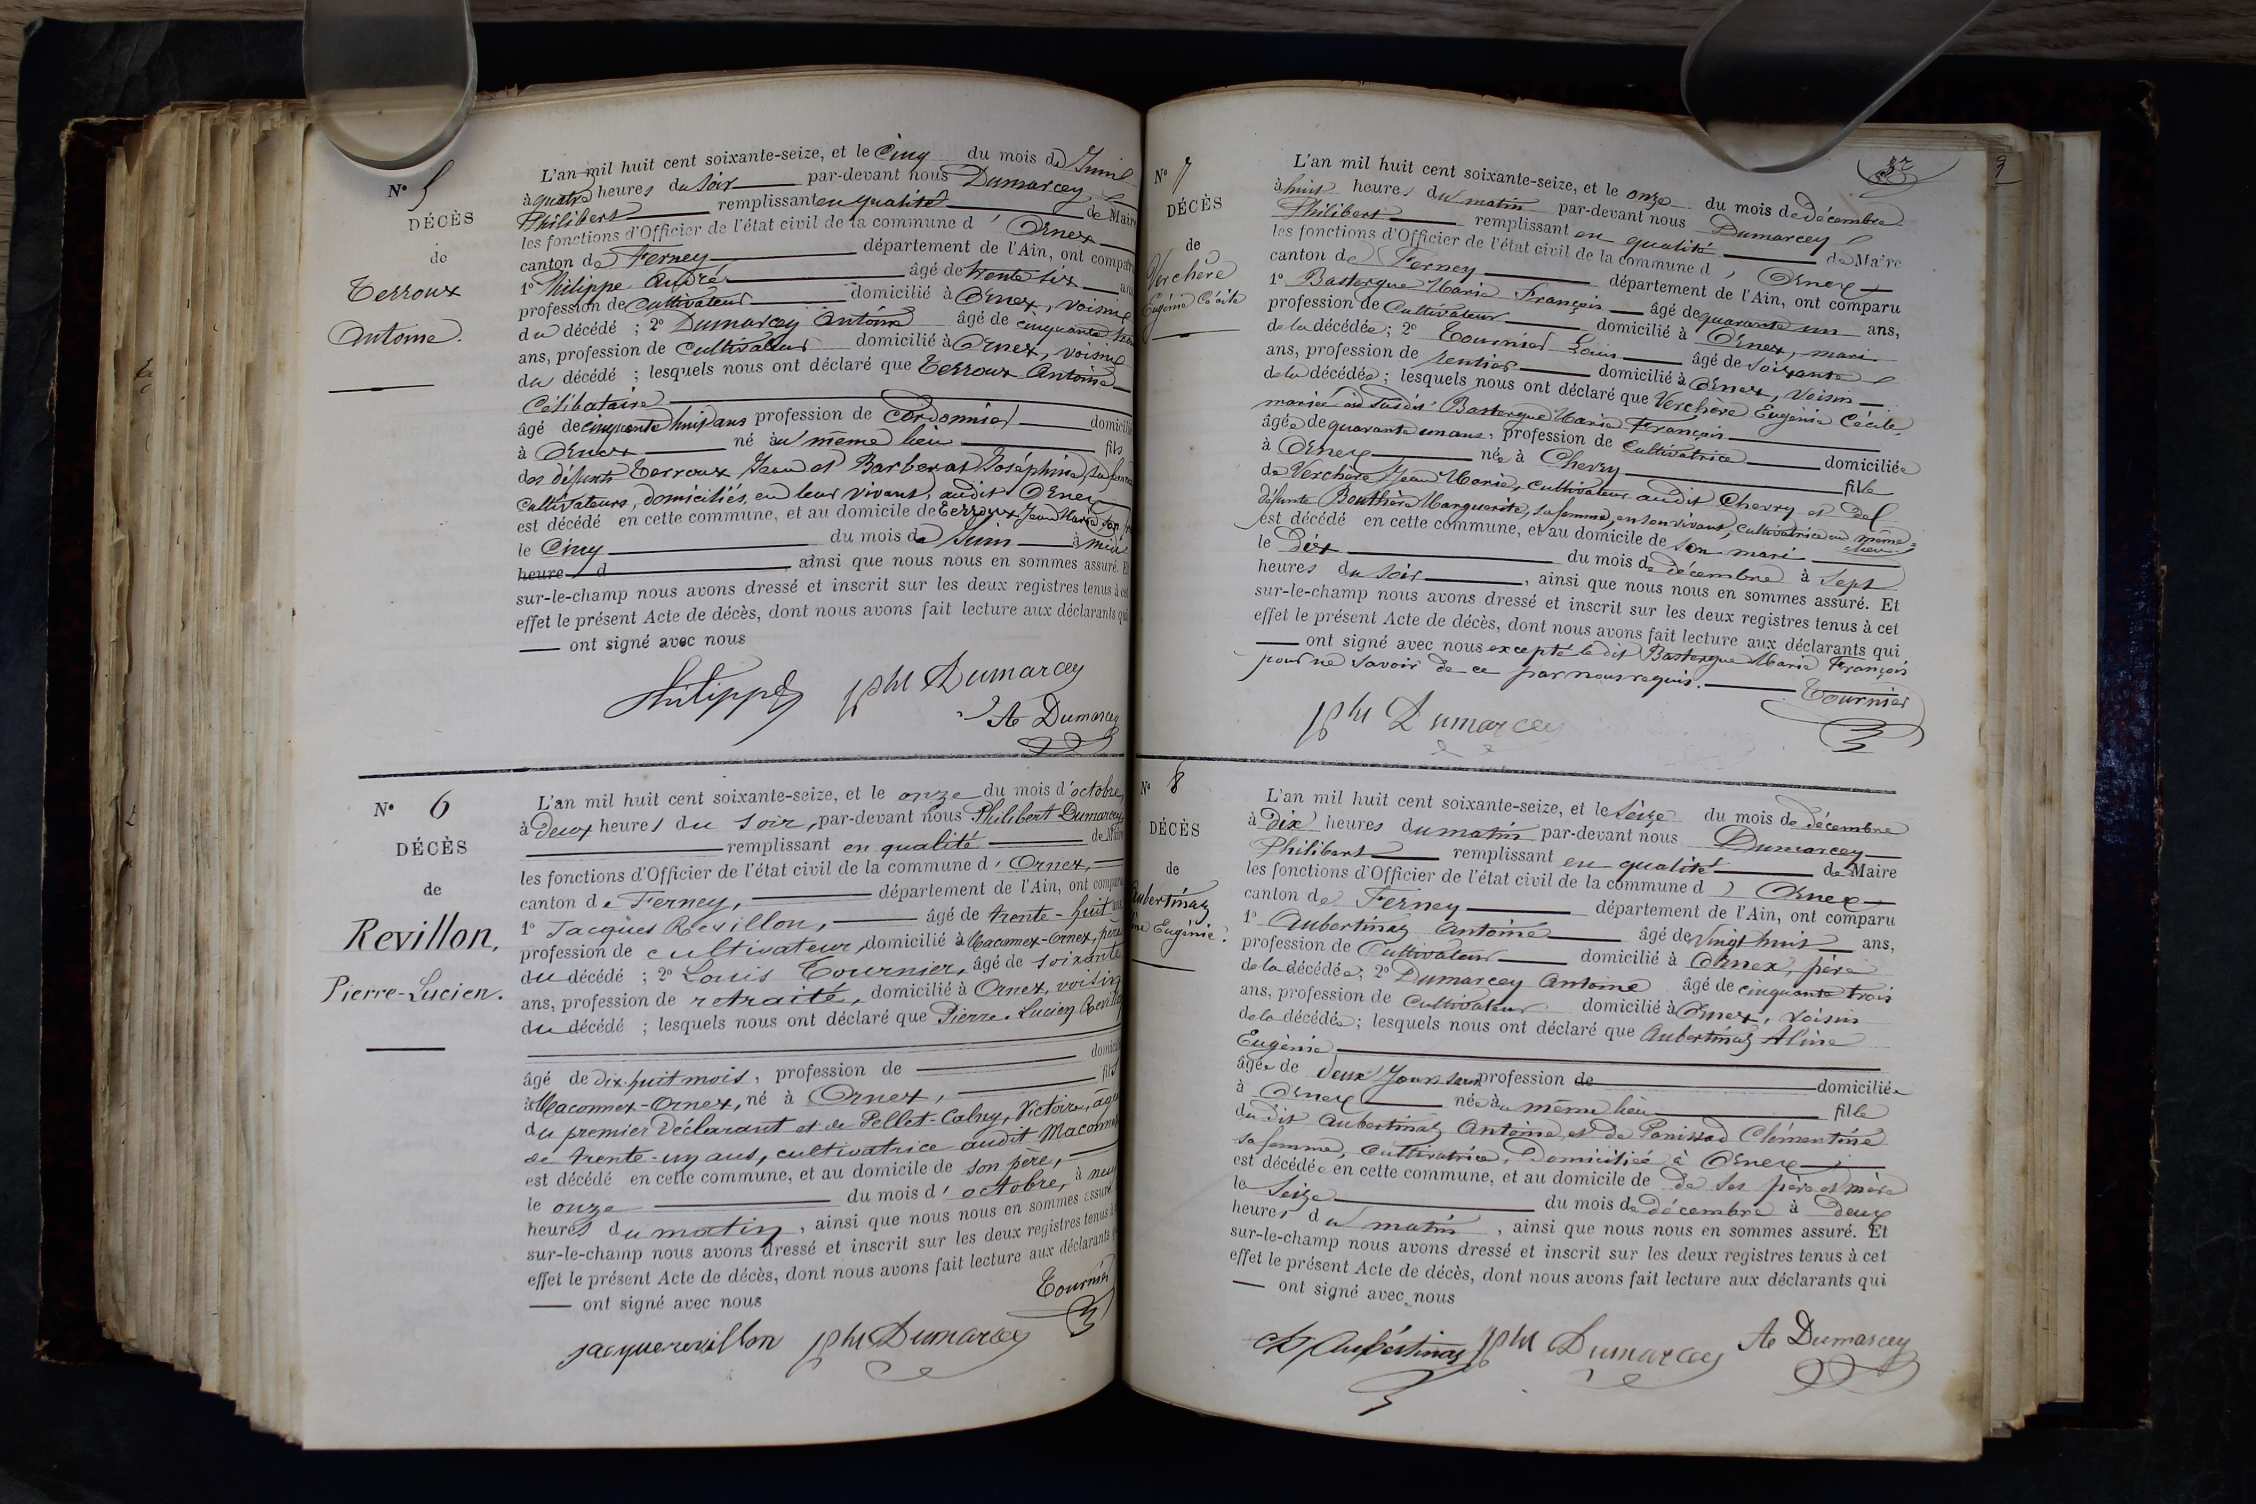 N° 5
DÉCÈS
de
Terroux
Antoine.
L'an mil huit cent soixante-seize, et le Cinq du mois de Juin
à quatre heures du soir par-devant nous Dumarcey
Philibert remplissant en qualité de Maire
les fonctions d'Officier de l'état civil de la commune d' Ornex
canton de Ferney département de l'Ain, ont comparu
1° Philippe André âgé de trente six ans
profession de Cultivateur domicilié à Ornex, voisin
du décédé ; 2° Dumarcey Antoine âgé de cinquante
ans, profession de Cultivateur domicilié à Ornex, voisin
du décédé ; lesquels nous ont déclaré que Terroux Antoine
Célibataire
âgé de cinquante huit ans profession de Cordonnier domicilié
à Ornex né au même lieu fils
des défunts Terroux Jean et Barberat Joséphine, sa femme
Cultivateurs, domiciliés, en leur vivant, audit Ornex
est décédé en cette commune, et au domicile de Terroux Jean Marie son
le Cinq du mois de Juin à midi
heure d ainsi que nous nous en sommes assuré. Et
sur-le-champ nous avons dressé et inscrit sur les deux registres tenus à cet
effet le présent Acte de décès, dont nous avons fait lecture aux déclarants qui
ont signé avec nous
Philippe Pht Dumarcey
Ae Dumarcey
N° 6
DÉCÈS
de
Revillon,
Pierre-Lucien.
L'an mil huit cent soixante-seize, et le onze du mois d'octobre,
à deux heures du soir, par-devant nous Philibert Dumarcey
remplissant en qualité de Maire
les fonctions d'Officier de l'état civil de la commune d' Ornex,
canton de Ferney, département de l'Ain, ont comparu
1° Jacques Revillon, âgé de trente-huit ans
profession de cultivateur, domicilié à Maconnex-Ornex, père
du décédé ; 2° Louis Tournier, âgé de soixante
ans, profession de retraité, domicilié à Ornex, voisin
du décédé ; lesquels nous ont déclaré que Pierre-Lucien Revillon
âgé de dix-huit mois, profession de domicilié
à Maconnex-Ornex, né à Ornex, fils
du premier déclarant et de Pellet-Calny, Victoire, âgée
de trente-un ans, cultivatrice audit Maconnex
est décédé en cette commune, et au domicile de son père,
le onze du mois d' octobre, à neuf
heures du matin, ainsi que nous nous en sommes assuré.
sur-le-champ nous avons dressé et inscrit sur les deux registres tenus à
effet le présent Acte de décès, dont nous avons fait lecture aux déclarants
ont signé avec nous
Tournier
jacque revillon Pht Dumarcey
N° 7
DÉCÈS
de
Verchère
Eugénie Cécile
L'an mil huit cent soixante-seize, et le onze du mois de décembre
à huit heures du matin par-devant nous Dumarcey
Philibert remplissant en qualité de Maire
les fonctions d'Officier de l'état civil de la commune d' Ornex
canton de Ferney département de l'Ain, ont comparu
1° Bastergue Marie François âgé de quarante un ans,
profession de Cultivateur domicilié à Ornex, mari
de la décédée ; 2° Tournier Louis âgé de soixante
ans, profession de rentier domicilié à Ornex, voisin
de la décédée ; lesquels nous ont déclaré que Verchère Eugénie Cécile,
mariée au susdit Bastergue Marie François
âgée de quarante un ans, profession de Cultivatrice domiciliée
à Ornex née à Chevry fille
de Verchère Jean Marie, cultivateur audit Chevry et de
défunte Bouthière Marguerite, sa femme, en son vivant, cultivatrice au même
lieu
est décédé en cette commune, et au domicile de son mari
le Dix du mois de décembre à sept
heures du soir, ainsi que nous nous en sommes assuré. Et
sur-le-champ nous avons dressé et inscrit sur les deux registres tenus à cet
effet le présent Acte de décès, dont nous avons fait lecture aux déclarants qui
ont signé avec nous excepté le dit Bastergue Marie François
pour ne savoir de ce par nous requis.
Tournier
Pht Dumarcey
N° 8
DÉCÈS
de
Aubertinaz
Eugénie.
L'an mil huit cent soixante-seize, et le Seize du mois de décembre
à Dix heures du matin par-devant nous Dumarcey
Philibert remplissant en qualité de Maire
les fonctions d'Officier de l'état civil de la commune d' Ornex
canton de Ferney département de l'Ain, ont comparu
1° Aubertinaz Antoine âgé de vingt huit ans,
profession de Cultivateur domicilié à Ornex, père
de la décédée ; 2° Dumarcey Antoine âgé de cinquante trois
ans, profession de Cultivateur domicilié à Ornex, voisin
de la décédée ; lesquels nous ont déclaré que Aubertinaz Aline
Eugénie
âgée de deux jours profession de domiciliée
à Ornex née au même lieu fille
du dit Aubertinaz Antoine, et de Panissod Clémentine
sa femme, Cultivatrice, domiciliée à Ornex
est décédée en cette commune, et au domicile de de ses père et mère
le Seize du mois de décembre à Deux
heures du matin, ainsi que nous nous en sommes assuré. Et
sur-le-champ nous avons dressé et inscrit sur les deux registres tenus à cet
effet le présent Acte de décès, dont nous avons fait lecture aux déclarants qui
ont signé avec nous
Aubertinaz Pht Dumarcey Ae Dumarcey